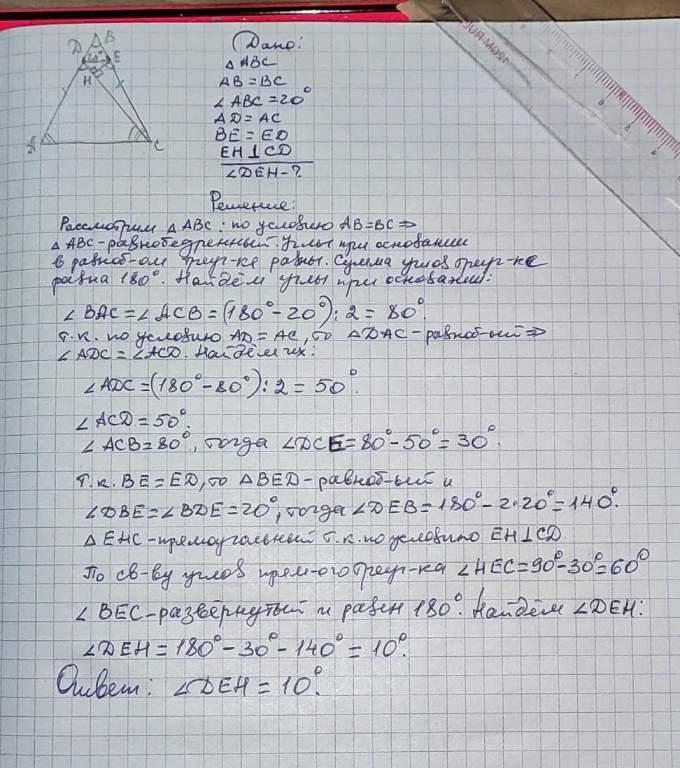 B
D
20°
E
H
A
C
Дано:
△ ABC
AB = BC
∠ ABC = 20°
AD = AC
BE = ED
EH ⊥ CD
∠DEH - ?
Решение:
Рассмотрим △ ABC: по условию AB=BC ⇒
△ ABC - равнобедренный. Углы при основании
в равноб-ом треуг-ке равны. Сумма углов треуг-ке
равна 180°. Найдём углы при основании:
∠ BAC = ∠ ACB = (180° - 20°) : 2 = 80°.
т.к. по условию AD = AC, то △ DAC - равноб-ый ⇒
∠ADC = ∠ACD. Найдём их:
∠ADC = (180° - 80°) : 2 = 50°.
∠ ACD = 50°.
∠ ACB = 80°, тогда ∠DCE = 80° - 50° = 30°.
т.к. BE = ED, то △ BED - равноб-ый и
∠DBE = ∠BDE = 20°, тогда ∠DEB = 180° - 2·20° = 140°.
△ EHC - прямоугольный т.к. по условию EH ⊥ CD.
По св-ву углов прям-ого треуг-ка ∠HEC = 90° - 30° = 60°
∠ BEC - развёрнутый и равен 180°. Найдём ∠DEH:
∠DEH = 180° - 30° - 140° = 10°.
Ответ: ∠DEH = 10°.